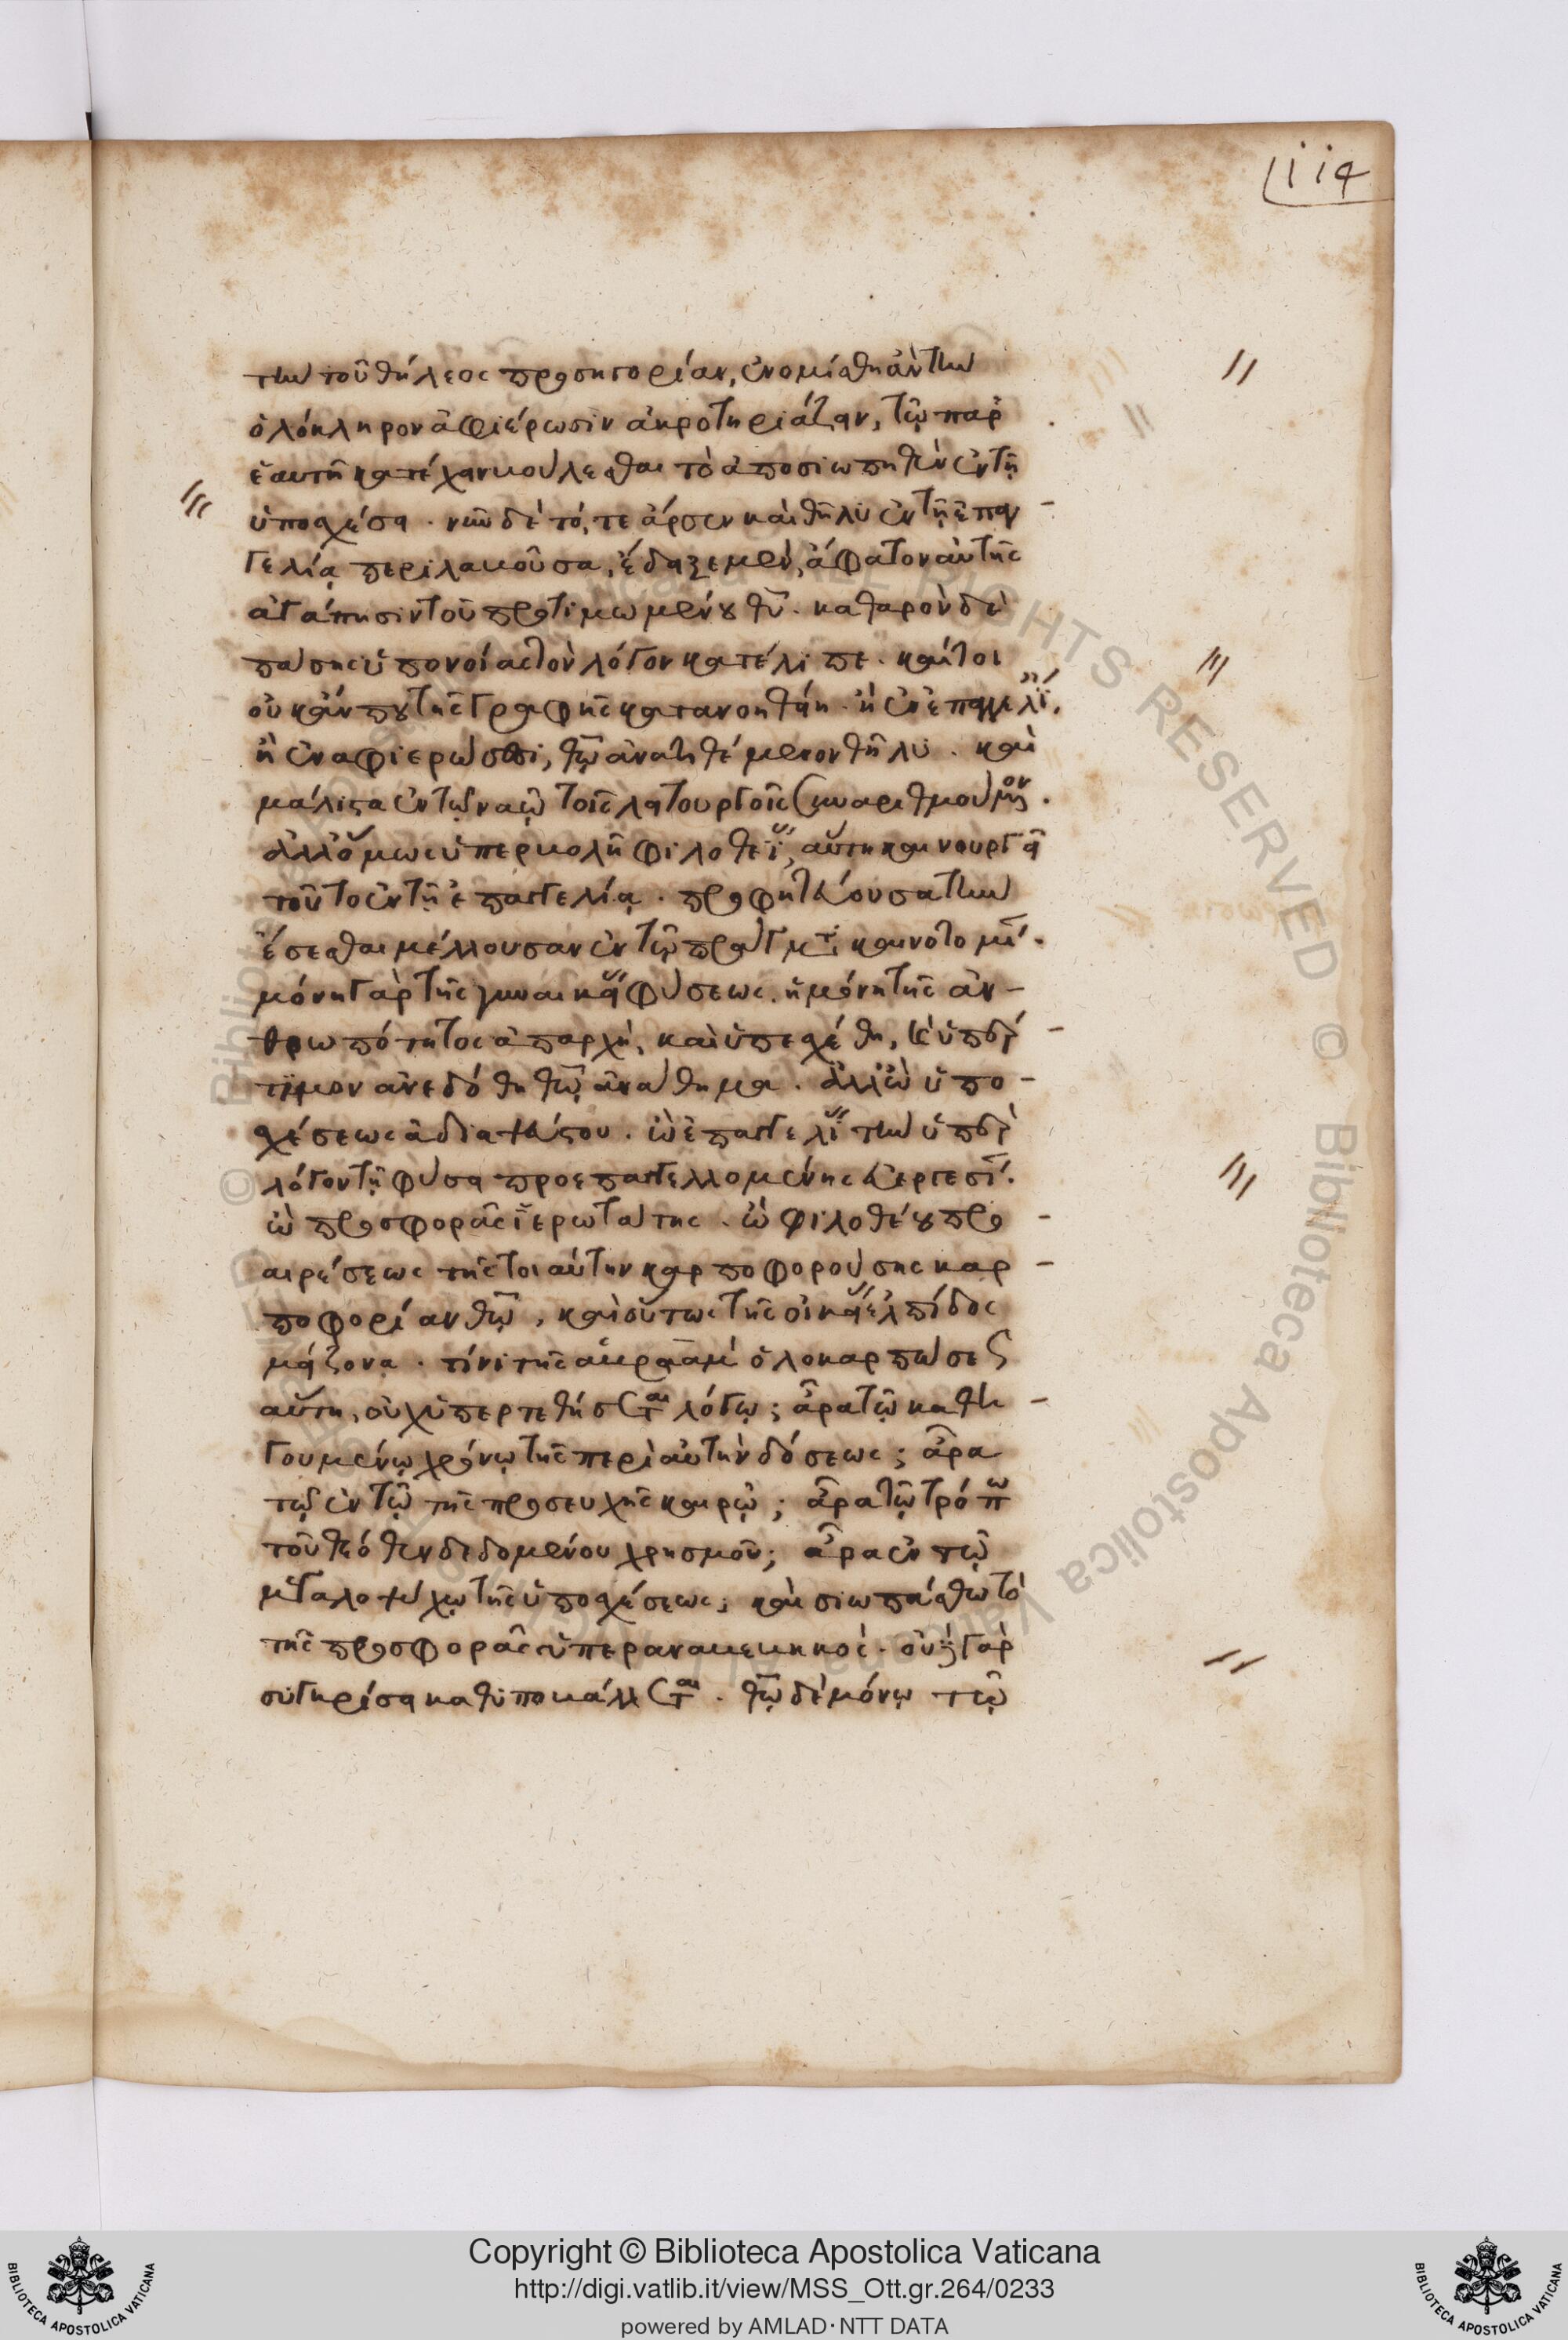 114
τὴν τοῦ θήλεος προσηγορίαν, ἐνομίσθη ἂν τὴν
ὁλόκληρον ἀφιέρωσιν ἀκροτηριάζειν, τῷ παρ
ἑαυτῇ κατέχειν βούλεσθαι τὸ ἀποσιωπηθὲν ἐν τῇ
ὑποσχέσει. νῦν δὲ τό, τε ἄρσεν καὶ θῆλυ ἐν τῇ ἐπαγ
γελίᾳ περιλαβοῦσα, ἔδειξε μὲν, ἄφατον αὐτῆς
ἀγάπησιν τοῦ προτιμωμένου θῦ. καθαρὸν δὲ
πάσης ὑπονοίας τὸν λόγον κατέλιπε. καίτοι
οὐκ ἄν που τῆς γραφῆς κατανοηθείη. ἢ ἐν ἐπαγγελί.
ἢ ἐν ἀφιερώσει, θῷ ἀνατιθέμενον θῆλυ. καὶ
μάλιστα ἐν τῷ ναῷ τοῖς λειτουργοῖς συναριθμούμενον.
ἀλλ' ὅμως ὑπερβολῇ φιλοθεΐ, αὕτη καινουργεῖ
τοῦτο ἐν τῇ ἐπαγγελίᾳ. προφητεύουσα τὴν
ἔσεσθαι μέλλουσαν ἐν τῷ πράγματι καινοτομί.
μόνη γὰρ τῆς γυναικείας φύσεως. ἡ μόνη τῆς ἀν-
θρωπότητος ἀπαρχὴ, καὶ ὑπεσχέθη, καὶ ὑπὲρ
τιμον ἀνεδόθη θῷ ἀνάθημα. ἀλλ' ὢ ὑπο-
σχέσεως ἀδιαψεύστου. ὢ ἐπαγγελίας τὴν ὑπὲρ
λόγον τῇ φύσει προεπαγγελλομένης εὐεργεσί.
ὢ προσφορᾶς ἱερωτάτης. ὢ φιλοθέου προ
αιρέσεως τῆς τοιαύτην καρποφορούσης καρ
ποφορίαν θῷ, καὶ οὕτως τῆς οἰκείας ἐλπίδος
μείζονα. τίνι τῆς ἀβραὰμ ὁλοκαρπώσεως
αὕτη, οὐχ ὑπερτεθήσεται λόγῳ; ἆρα τῷ καθη
γουμένῳ χρόνῳ τῆς περὶ αὐτὴν δόσεως; ἆρα
τῷ ἐν τῷ τῆς προσευχῆς καιρῷ; ἆρα τῷ τρόπω
τοῦ θεόθεν δεδομένου χρησμοῦ; ἆρα ἐν τῷ
μεγαλοψύχῳ τῆς ὑποσχέσεως; καὶ σιωπάσθω τὸ
τῆς προσφορᾶς ὑπεραναβεβηκός. οὐδὲ γὰρ
συγκρίσει καθυποβάλλεται. θῷ δὲ μόνῳ τῷ
Copyright © Biblioteca Apostolica Vaticana
http://digi.vatlib.it/view/MSS_Ott.gr.264/0233
powered by AMLAD·NTT DATA